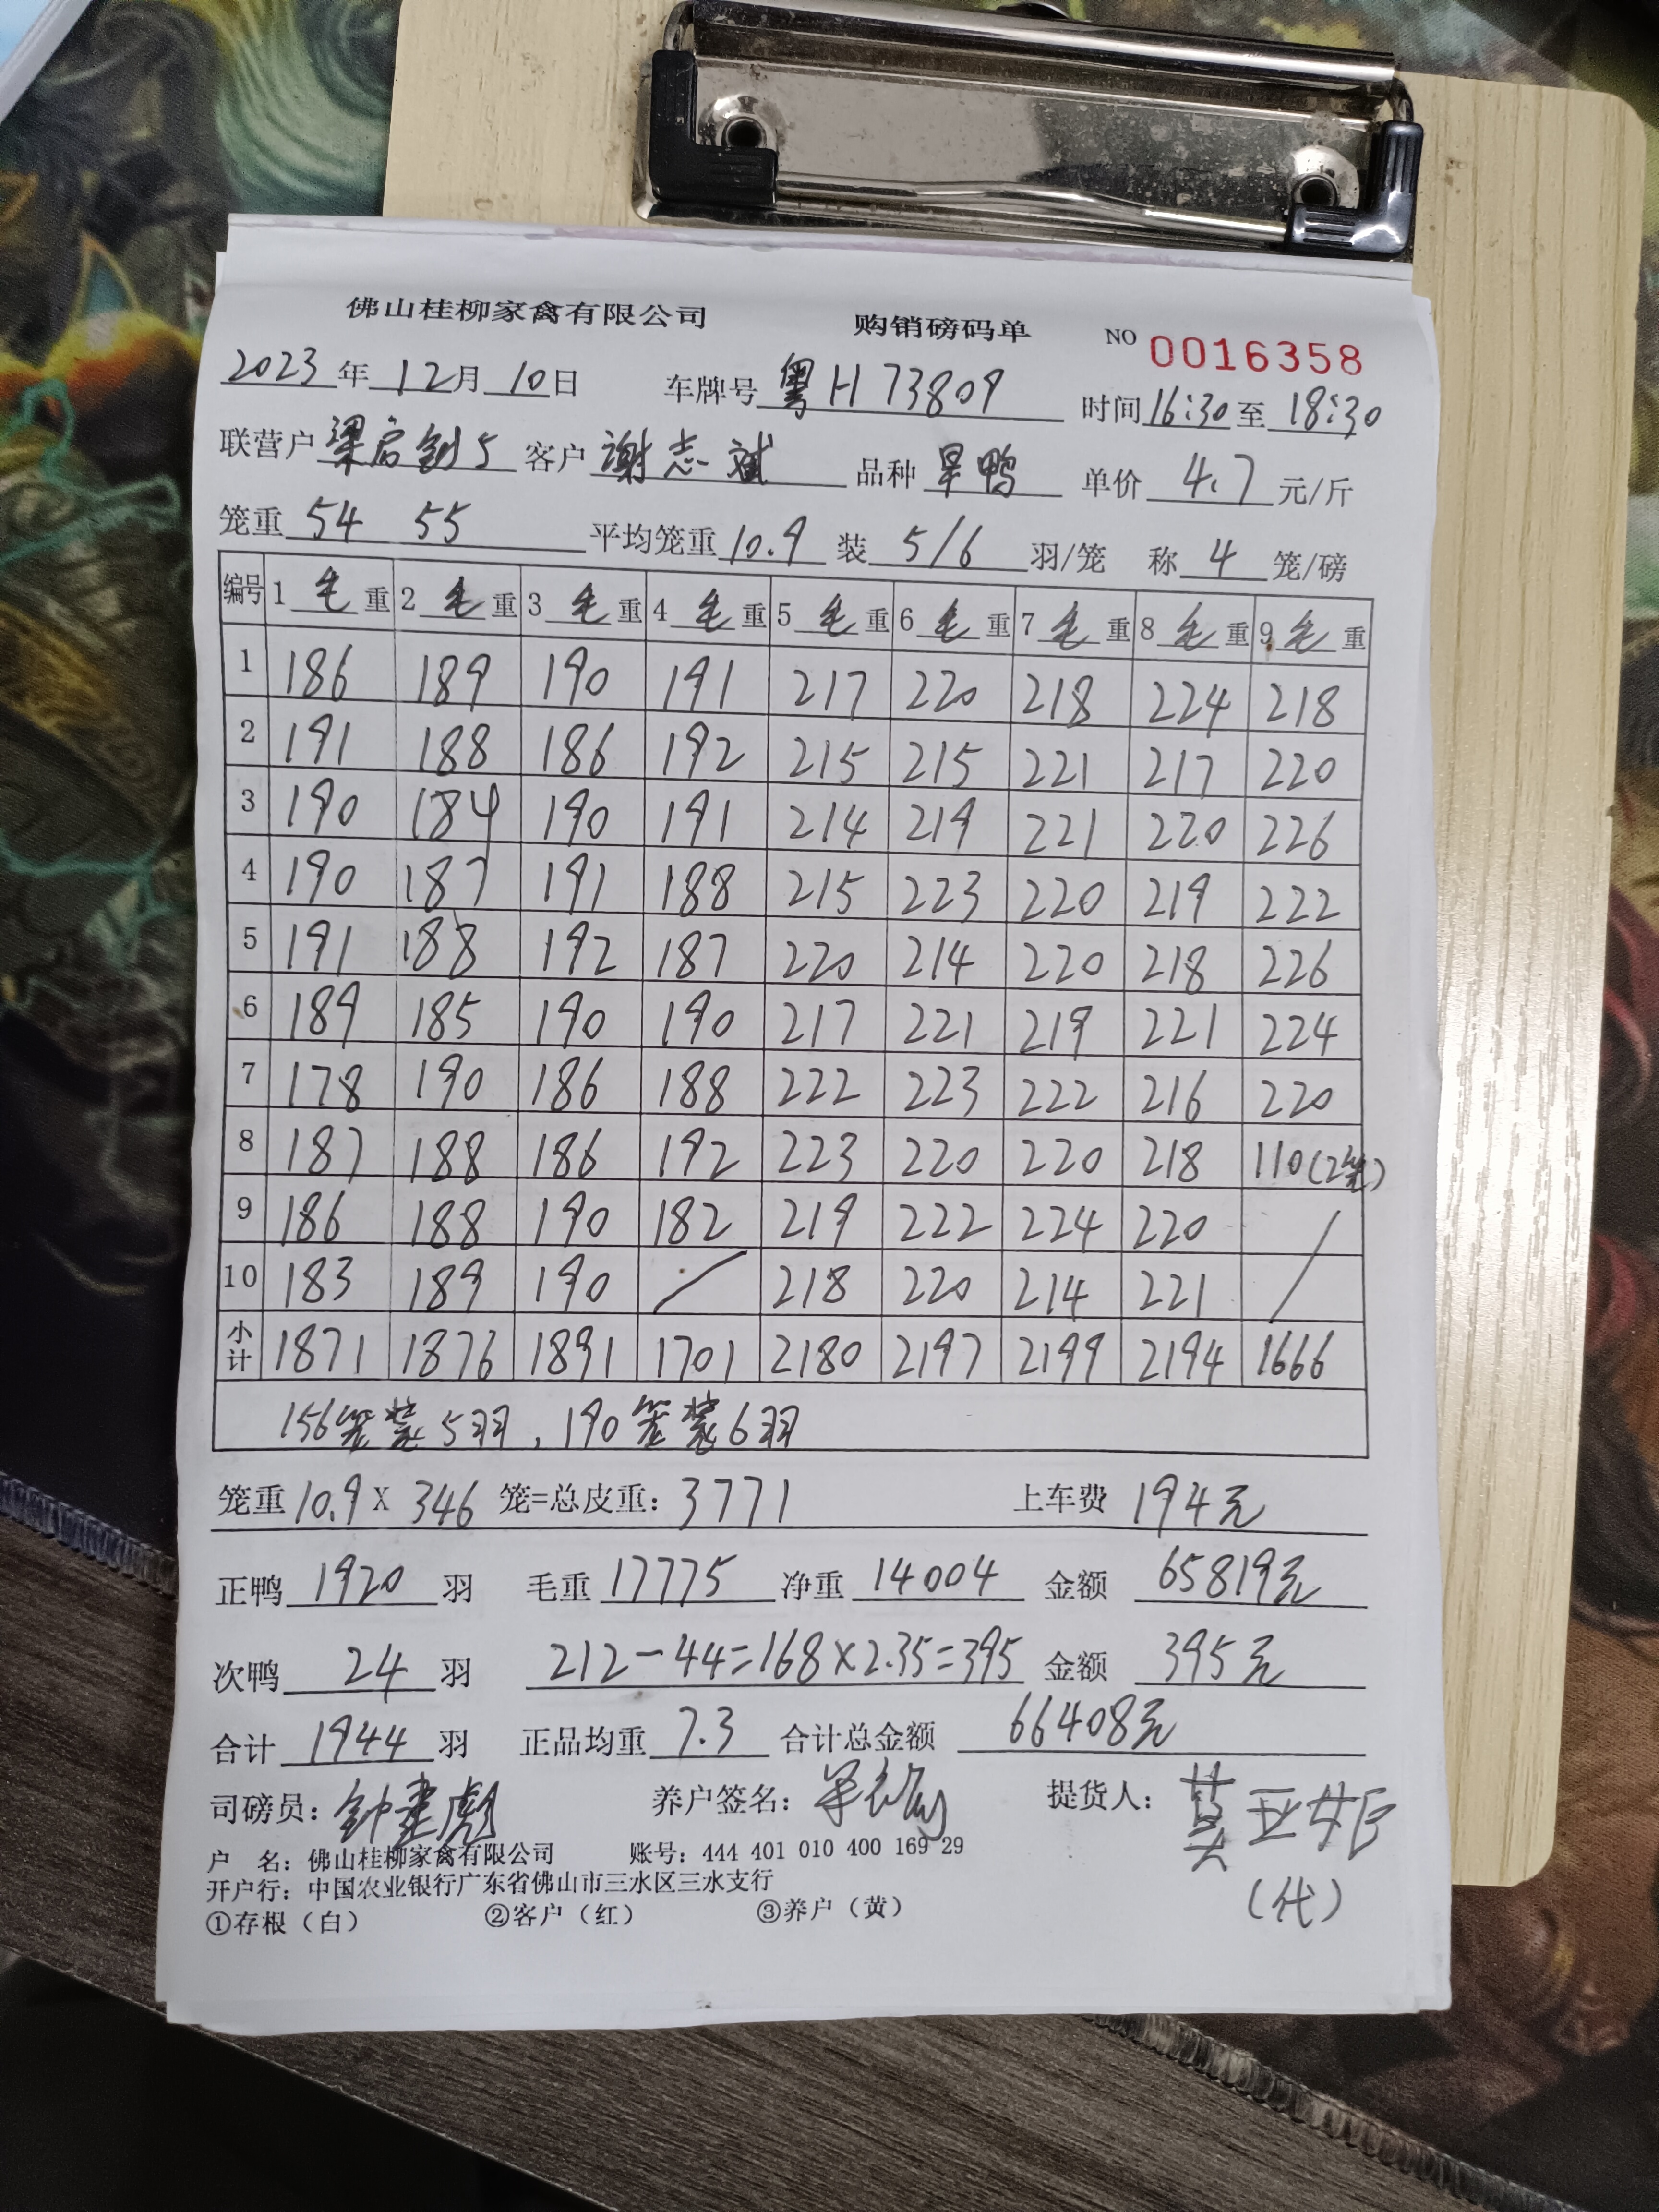 佛山桂柳家禽有限公司 购销磅码单 NO 0016358
2023年12月10日 车牌号 粤H73809 时间16:30至18:30
联营户 梁启钊5 客户 谢志斌 品种 旱鸭 单价 4.7 元/斤
笼重 54 55 平均笼重 10.9 装 5/6 羽/笼 称 4 笼/磅
编号 1毛重 2毛重 3毛重 4毛重 5毛重 6毛重 7毛重 8毛重 9毛重
1 186 189 190 191 217 220 218 224 218
2 191 188 186 192 215 215 221 217 220
3 190 184 190 191 214 219 221 220 226
4 190 187 191 188 215 223 220 219 222
5 191 188 192 187 220 214 220 218 226
6 189 185 190 190 217 221 219 221 224
7 178 190 186 188 222 223 222 216 220
8 187 188 186 192 223 220 220 218 110(2笼)
9 186 188 190 182 219 222 224 220 /
10 183 189 190 / 218 220 214 221 /
小计 1871 1876 1891 1701 2180 2197 2199 2194 1666
156笼装5羽,190笼装6羽
笼重10.9X 346 笼=总皮重: 3771 上车费 194元
正鸭 1920 羽 毛重 17775 净重 14004 金额 65819元
次鸭 24 羽 212-44=168×2.35=395 金额 395元
合计 1944 羽 正品均重 7.3 合计总金额 66408元
司磅员: 钟建彪 养户签名: 提货人: 莫亚妃
户 名: 佛山桂柳家禽有限公司 账号: 444 401 010 400 169 29
开户行: 中国农业银行广东省佛山市三水区三水支行
①存根(白) ②客户(红) ③养户(黄) (代)